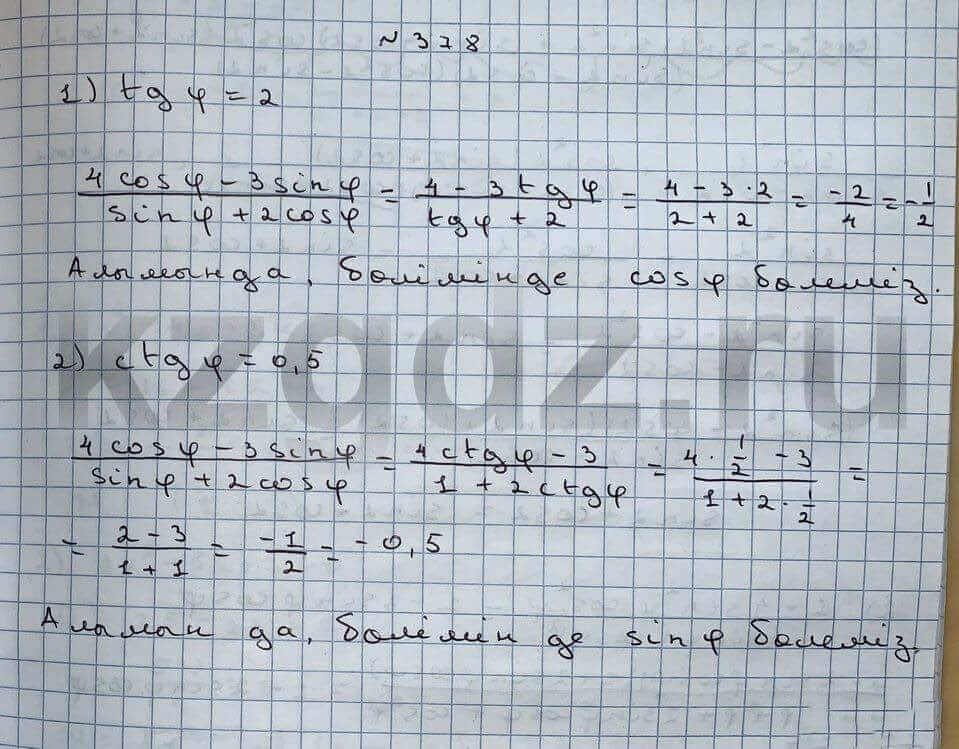 № 378
1) tg φ = 2
4 cos φ − 3 sin φ / sin φ + 2 cos φ = 4 − 3 tg φ / tg φ + 2 = 4 − 3 · 2 / 2 + 2 = −2 / 4 = − 1 / 2
Алымында, бөлімінде cos φ бөлеміз.
2) ctg φ = 0,5
4 cos φ − 3 sin φ / sin φ + 2 cos φ = 4 ctg φ − 3 / 1 + 2 ctg φ = 4 · 1/2 − 3 / 1 + 2 · 1/2 =
= 2 − 3 / 1 + 1 = −1 / 2 = − 0,5
Алыман да, бөлімін де sin φ бөлеміз.
kzgdz.ru